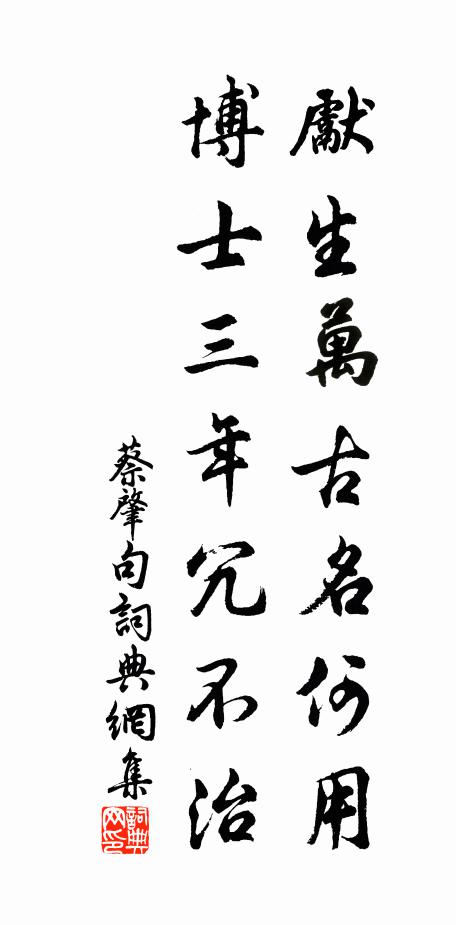 獻生萬古名何用
博士三年冗不治
蔡肇句詞典網集
詞典网印